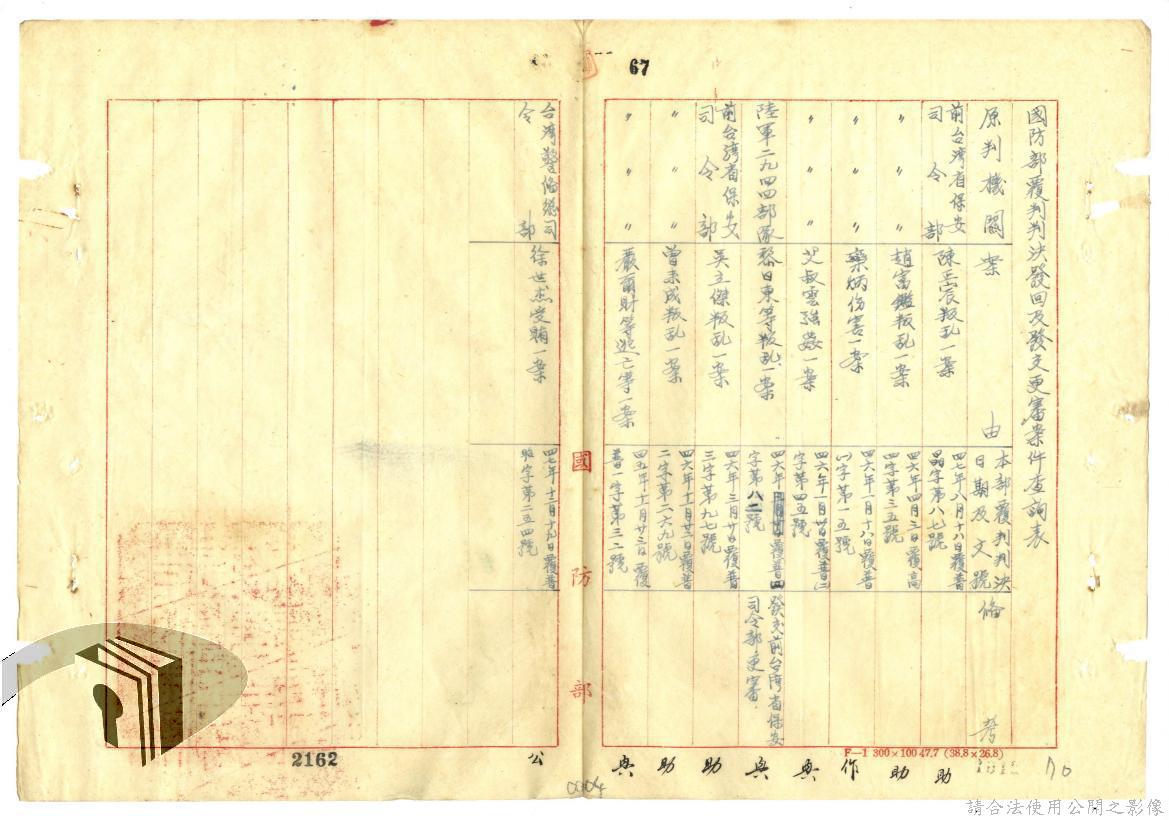 67
國防部覆判判決發回及發交更審案件查詢表
原判機關
案由
本部覆判判決日期及文號
備考
前台湾省保安司令部
陳正宸叛乱一案
四七年八月十八日覆普
晶字第八七號
〃〃〃
趙富鑑叛乱一案
四六年四月三日覆高
四字第三五號
〃〃
藥炳伤害一案
四六年一月十八日覆普
字第一五號
〃〃〃
艾叔雲強姦一案
四六年一月日覆普二
字第四五號
陸軍二九四四部隊
黎日東等叛乱一案
四六年月日覆普四
字第八二號
發交前台湾省保安
司令部更審
前台湾省保安司令部
吴立傑叛乱一案
四六年三月廿日覆普
三字第九七號
〃〃〃
曾未成叛乱一案
四六年十一月廿三日覆普
二字第二六九號
〃〃〃
嚴爾財等逃亡等一案
四五年十二月廿三日覆
普一字第三二號
台湾警俻總司令部
徐世杰受賄一案
四七年十二月十九日覆普
字第二五四號
國防部
F—1 300×100 47.7 (38.8×26.8)
助
助
作
典
典
助
助
典
公
70
2162
0004
請合法使用公開之影像